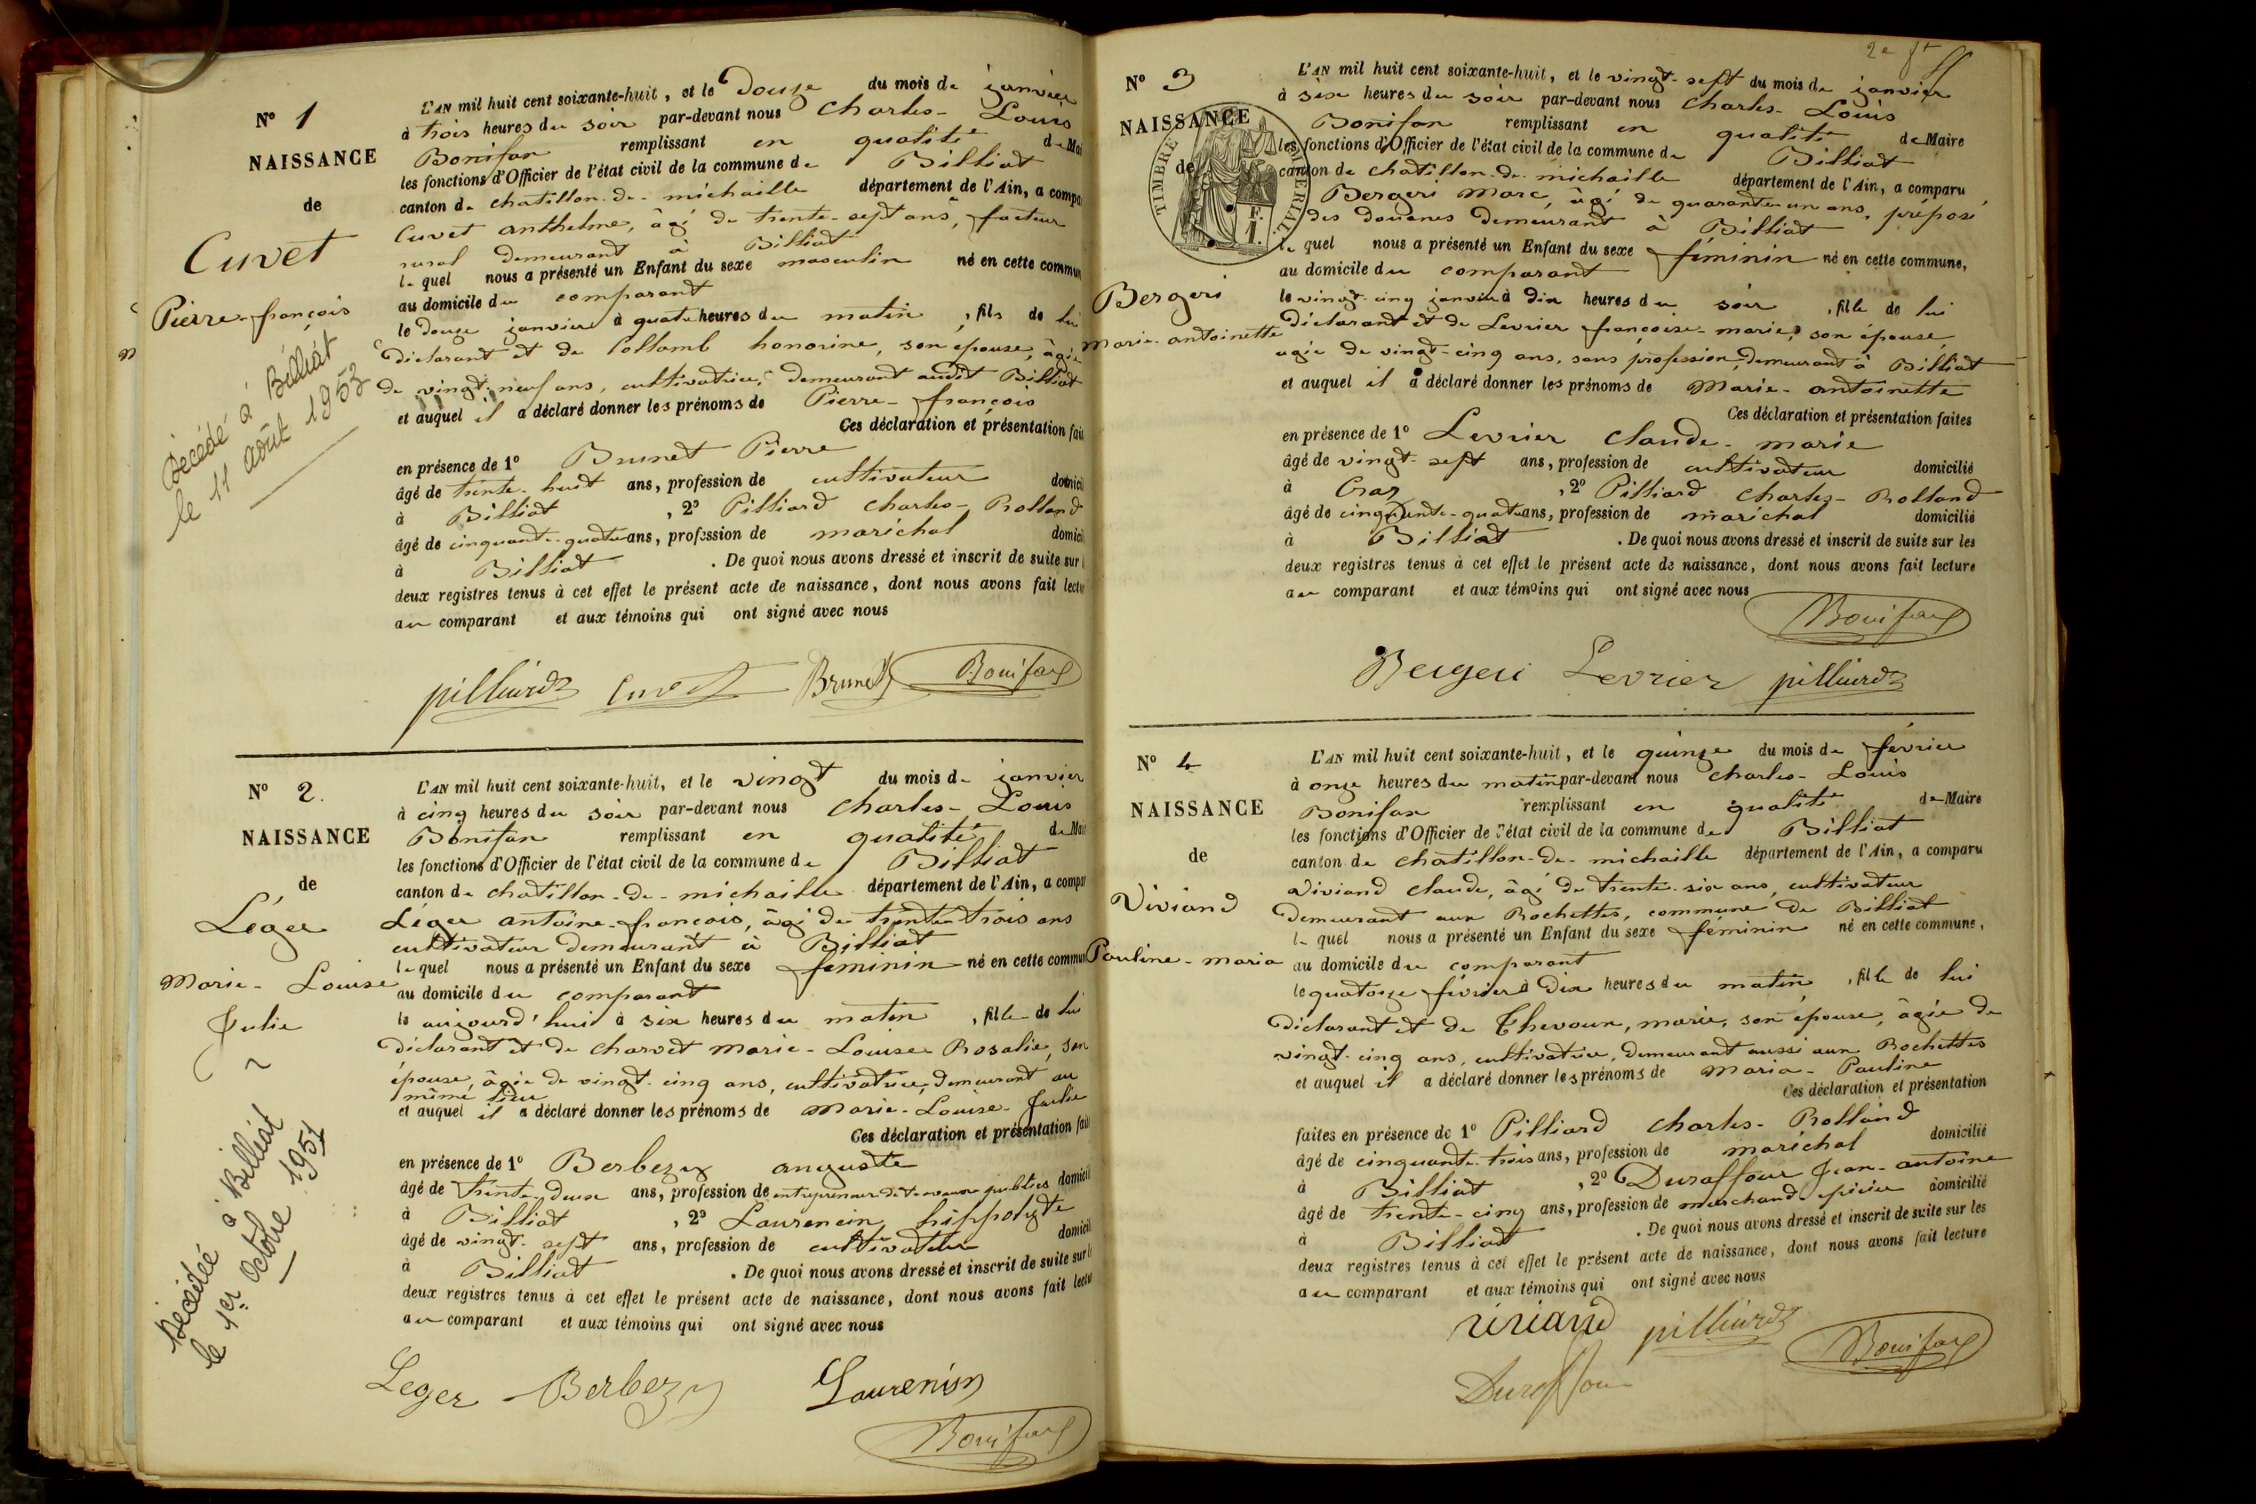 N° 1
NAISSANCE
de
Cuvet
Pierre-françois
Décédé à Billiat
le 11 août 1953
L'AN mil huit cent soixante-huit, et le Douze du mois de janvier
à trois heures du soir par-devant nous Charles-Louis
Bonifax remplissant en qualité de Mai
les fonctions d'Officier de l'état civil de la commune de Billiat
canton de chatillon-de-michaille département de l'Ain, a compa
Cuvet anthelme, âgé de trente-sept ans, facteur
rural demeurant à Billiat
lequel nous a présenté un Enfant du sexe masculin né en cette commun
au domicile du comparant
le douze janvier à quatre heures du matin, fils de lui
Déclarant et de Collomb honorine, son épouse, âgée
de vingt-neuf ans, cultivatrice, demeurant audit Billiat
et auquel il a déclaré donner les prénoms de Pierre-françois
Ces déclaration et présentation fait
en présence de 1° Brunet Pierre
âgé de trente-huit ans, profession de cultivateur domicil
à Billiat, 2° Pilliard Charles-Rolland
âgé de cinquante-quatre ans, profession de maréchal domicil
à Billiat. De quoi nous avons dressé et inscrit de suite sur l
deux registres tenus à cet effet le présent acte de naissance, dont nous avons fait lectu
au comparant et aux témoins qui ont signé avec nous
pilliard Cuvet Brunet Bonifax
N° 2.
NAISSANCE
de
Léger
Marie-Louise
Julie
Décédée à Billiat
le 1er Octobre 1951
L'AN mil huit cent soixante-huit, et le vingt du mois de janvier
à cinq heures du soir par-devant nous Charles-Louis
Bonifax remplissant en qualité de Mai
les fonctions d'Officier de l'état civil de la commune de Billiat
canton de chatillon-de-michaille département de l'Ain, a compar
Léger antoine-françois, âgé de trente-trois ans
cultivateur demeurant à Billiat
lequel nous a présenté un Enfant du sexe féminin né en cette commun
au domicile du comparant
le aujourd'hui à six heures du matin, fille de lui
Déclarant et de Charvet Marie-Louise Rosalie, son
épouse, âgée de vingt-cinq ans, cultivatrice, demeurant au
même lieu
et auquel il a déclaré donner les prénoms de Marie-Louise-Julie
Ces déclaration et présentation fait
en présence de 1° Berbezy auguste
âgé de trente-deux ans, profession de entrepreneur de travaux publics domicil
à Billiat, 2° Laurencin hippolyte
âgé de vingt-sept ans, profession de cultivateur domicil
à Billiat. De quoi nous avons dressé et inscrit de suite sur l
deux registres tenus à cet effet le présent acte de naissance, dont nous avons fait lectu
au comparant et aux témoins qui ont signé avec nous
Leger Berbezy Laurencin
Bonifax
N° 3
NAISSANCE
de
TIMBRE IMPERIAL.
1 F.
Bergeri
Marie-antoinette
L'AN mil huit cent soixante-huit, et le vingt-sept du mois de janvier
à six heures du soir par-devant nous Charles-Louis
Bonifax remplissant en qualité de Maire
les fonctions d'Officier de l'état civil de la commune de Billiat
canton de chatillon-de-michaille département de l'Ain, a comparu
Bergeri Marc, âgé de quarante un ans, préposé
des douanes demeurant à Billiat
lequel nous a présenté un Enfant du sexe féminin né en cette commune,
au domicile du comparant
le vingt-cinq janvier à dix heures du soir, fille de lui
Déclarant et de Levrier françoise-marie, son épouse,
agée de vingt-cinq ans, sans profession, demeurant à Billiat
et auquel il a déclaré donner les prénoms de Marie-antoinette
Ces déclaration et présentation faites
en présence de 1° Levrier Claude-marie
âgé de vingt-sept ans, profession de cultivateur domicilié
à Craz, 2° Pilliard Charles-Rolland
âgé de cinquante-quatre ans, profession de maréchal domicilié
à Billiat. De quoi nous avons dressé et inscrit de suite sur les
deux registres tenus à cet effet le présent acte de naissance, dont nous avons fait lecture
au comparant et aux témoins qui ont signé avec nous
Bonifax
Bergeri Levrier pilliard
N° 4
NAISSANCE
de
Viviand
Pauline-maria
L'AN mil huit cent soixante-huit, et le quinze du mois de février
à onze heures du matin par-devant nous Charles-Louis
Bonifax remplissant en qualité de Maire
les fonctions d'Officier de l'état civil de la commune de Billiat
canton de chatillon-de-michaille département de l'Ain, a comparu
Viviand Claude, âgé de trente-six ans, cultivateur
demeurant aux Rochettes, commune de Billiat
lequel nous a présenté un Enfant du sexe féminin né en cette commune,
au domicile du comparant
le quatorze février à dix heures du matin, fille de lui
Déclarant et de Thevoux, marie, son épouse, âgée de
vingt-cinq ans, cultivatrice, demeurant aussi aux Rochettes
et auquel il a déclaré donner les prénoms de Maria-Pauline
Ces déclaration et présentation
faites en présence de 1° Pilliard Charles-Rolland
âgé de cinquante-trois ans, profession de maréchal domicilié
à Billiat, 2° Duraffour Jean-antoine
âgé de trente-cinq ans, profession de marchand épicier domicilié
à Billiat. De quoi nous avons dressé et inscrit de suite sur les
deux registres tenus à cet effet le présent acte de naissance, dont nous avons fait lecture
au comparant et aux témoins qui ont signé avec nous
viviand pilliard Bonifax
Duraffour